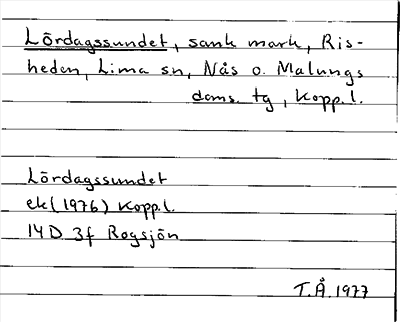 Lördagssundet, sank mark, Ris-
heden, Lima sn, Nås o. Malungs
doms. tg, Kopp.l.
Lördagssundet
ek(1976) Kopp.l.
14D 3f Rogsjön
T.Å.1977